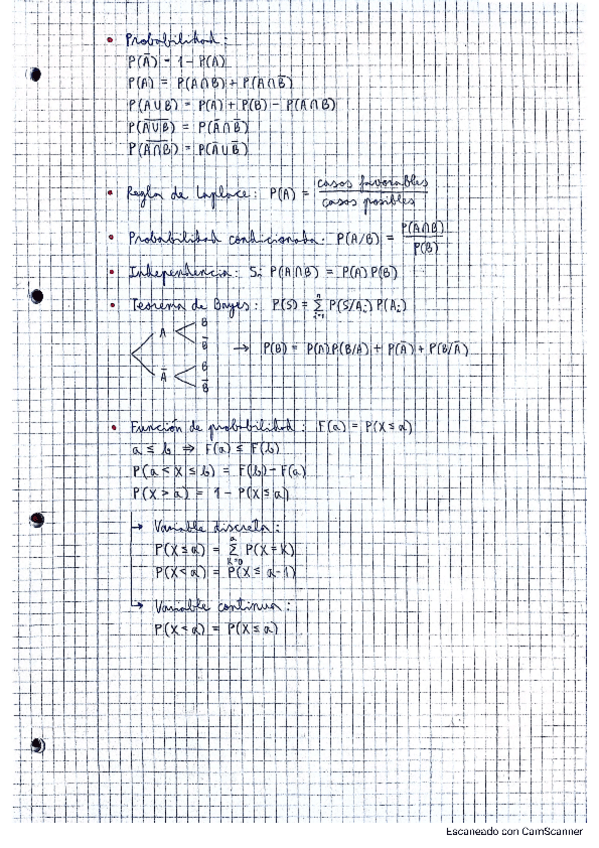 • Probabilidad:
P(Ā) = 1 - P(A)
P(A) = P(A∩B) + P(A∩B̄)
P(A∪B) = P(A) + P(B) - P(A∩B)
P(A̅∪̅B̅) = P(Ā∩B̄)
P(A̅∩̅B̅) = P(Ā∪B̄)
• Regla de Laplace: P(A) = casos favorables / casos posibles
• Probabilidad condicionada: P(A/B) = P(A∩B) / P(B)
• Independencia: Si P(A∩B) = P(A)P(B)
• Teorema de Bayes: P(S) = ∑ⁿᵢ₌₁ P(S/Aᵢ)P(Aᵢ)
A B B̄
Ā B B̄
→ P(B) = P(A)P(B/A) + P(Ā) + P(B/Ā)
• Función de probabilidad: F(a) = P(X ≤ a)
a ≤ b ⇒ F(a) ≤ F(b)
P(a < X ≤ b) = F(b) - F(a)
P(X > a) = 1 - P(X ≤ a)
→ Variable discreta:
P(X ≤ a) = ∑ᵃₖ₌₀ P(X = K)
P(X < a) = P(X ≤ a-1)
→ Variable continua:
P(X < a) = P(X ≤ a)
Escaneado con CamScanner